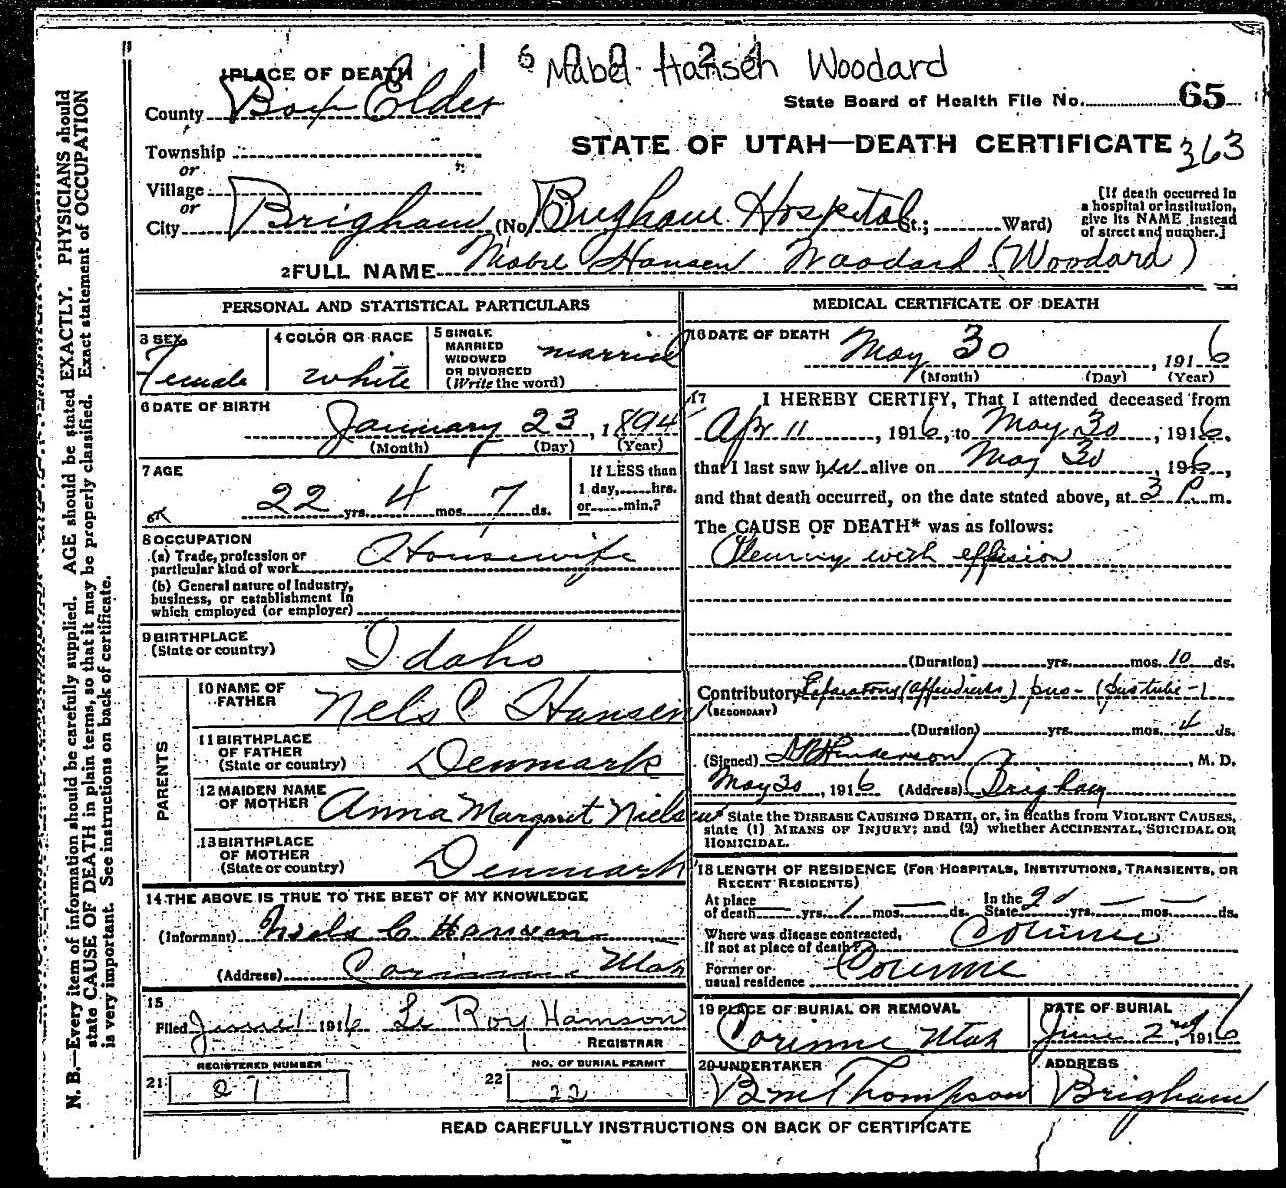 Mabel Hansen Woodard
1 PLACE OF DEATH
County Box Elder
State Board of Health File No. 65
Township
or
Village
or
City Brigham (No. Brigham Hospital St.; Ward)
STATE OF UTAH—DEATH CERTIFICATE 363
[If death occurred in
a hospital or institution,
give its NAME instead
of street and number.]
2 FULL NAME Mabel Hansen Woodard (Woodard)
PERSONAL AND STATISTICAL PARTICULARS
3 SEX
Female
4 COLOR OR RACE
white
5 SINGLE
MARRIED
WIDOWED
OR DIVORCED
(Write the word)
married
6 DATE OF BIRTH
January 23, 1894
(Month) (Day) (Year)
7 AGE
22 yrs. 4 mos. 7 ds.
If LESS than
1 day, hrs.
or min.?
8 OCCUPATION
(a) Trade, profession or
particular kind of work Housewife
(b) General nature of Industry,
business, or establishment in
which employed (or employer)
9 BIRTHPLACE
(State or country) Idaho
PARENTS
10 NAME OF
FATHER Nels C Hansen
11 BIRTHPLACE
OF FATHER
(State or country) Denmark
12 MAIDEN NAME
OF MOTHER Anna Margaret Nielsen
13 BIRTHPLACE
OF MOTHER
(State or country) Denmark
14 THE ABOVE IS TRUE TO THE BEST OF MY KNOWLEDGE
(Informant) Niels C Hansen
(Address) Corinne Utah
15
Filed June 1 1916 Le Roy Hamson
REGISTRAR
REGISTERED NUMBER
21 27
NO. OF BURIAL PERMIT
22 22
MEDICAL CERTIFICATE OF DEATH
16 DATE OF DEATH May 30, 1916
(Month) (Day) (Year)
17 I HEREBY CERTIFY, That I attended deceased from
Apr 11, 1916, to May 30, 1916,
that I last saw her alive on May 30, 1916,
and that death occurred, on the date stated above, at 3 P m.
The CAUSE OF DEATH* was as follows:
Pleurisy with effusion
(Duration) yrs. mos. 10 ds.
Contributory (appendicitis) pus
(SECONDARY)
(Duration) yrs. mos. 4 ds.
(Signed) Henderson, M. D.
May 30, 1916 (Address) Brigham
* State the DISEASE CAUSING DEATH, or, in deaths from VIOLENT CAUSES,
state (1) MEANS OF INJURY; and (2) whether ACCIDENTAL, SUICIDAL OR
HOMICIDAL.
18 LENGTH OF RESIDENCE (FOR HOSPITALS, INSTITUTIONS, TRANSIENTS, OR
RECENT RESIDENTS)
At place
of death — yrs. 1 mos. — ds.
In the
State 20 yrs. — mos. — ds.
Where was disease contracted,
if not at place of death? Corinne
Former or
usual residence Corinne
19 PLACE OF BURIAL OR REMOVAL
Corinne Utah
DATE OF BURIAL
June 2nd, 1916
20 UNDERTAKER
B M Thompson
ADDRESS
Brigham
READ CAREFULLY INSTRUCTIONS ON BACK OF CERTIFICATE
N. B.—Every item of information should be carefully supplied. AGE should be stated EXACTLY. PHYSICIANS should
state CAUSE OF DEATH in plain terms, so that it may be properly classified. Exact statement of OCCUPATION
is very important. See instructions on back of certificate.